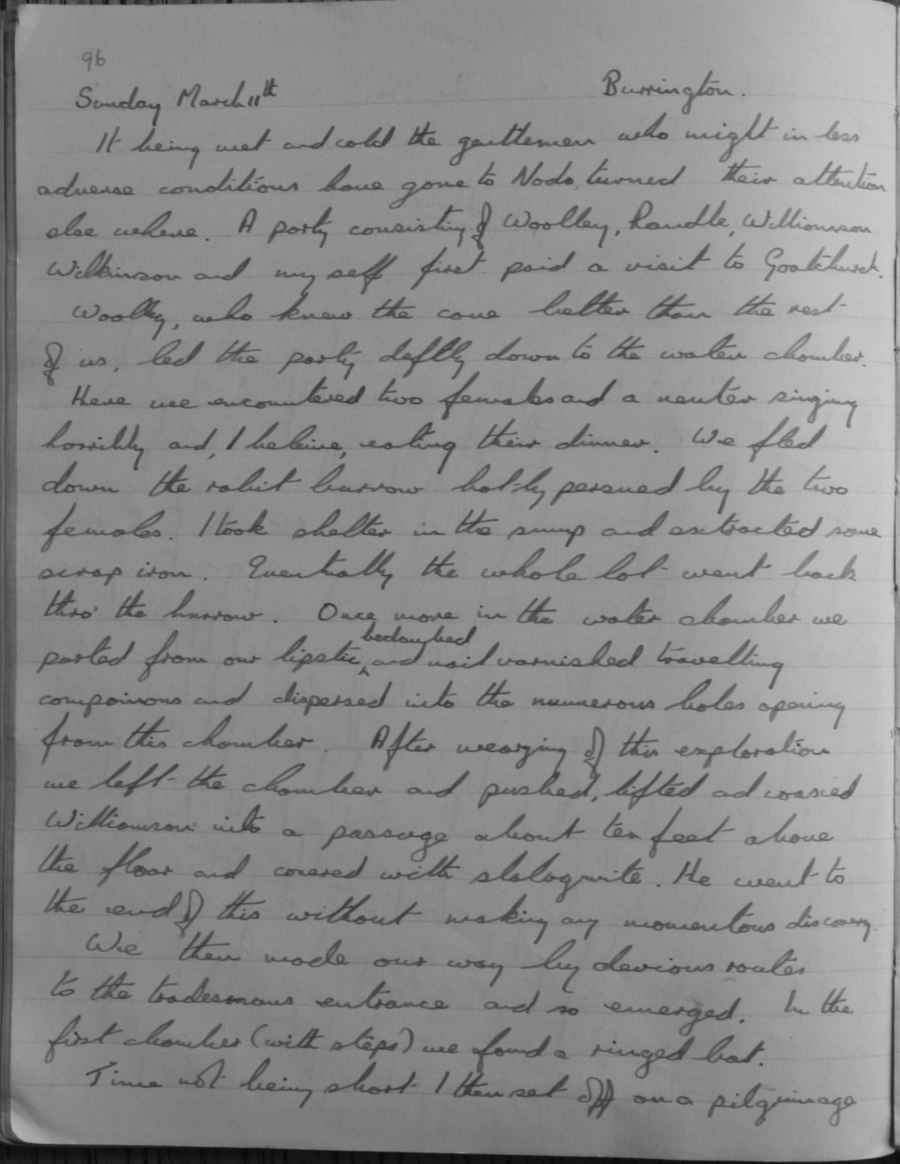 96
Sunday March 11th Burrington.
It being wet and cold the gentlemen who might in less
adverse conditions have gone to Nods, turned their attention
else where. A party consisting of Woolley, Randle, Williamson
Wilkinson and my self first paid a visit to Goatchurch.
Woolley, who knew the cave better than the rest
of us, led the party deftly down to the water chamber.
Here we encountered two females and a neuter singing
horribly and, I beleive, eating their dinner. We fled
down the rabit burrow hotly persued by the two
females. I took shelter in the sump and extracted some
scrap iron. Eventually the whole lot went back
thro' the burrow. Once more in the water chamber we
bedaubed
parted from our lipstic, and nail varnished travelling
compainons and dispersed into the numerous holes opening
from this chamber. After wearying of this exploration
we left the chamber and pushed, lifted and coaxed
Williamson into a passage about ten feet above
the floor and covered with stalagmite. He went to
the end of this without making any momentous discovery.
We then made our way by devious routes
to the tradesmans entrance and so emerged. In the
first chamber (with steps) we found a ringed bat.
Time not being short I then set off on a pilgrimage